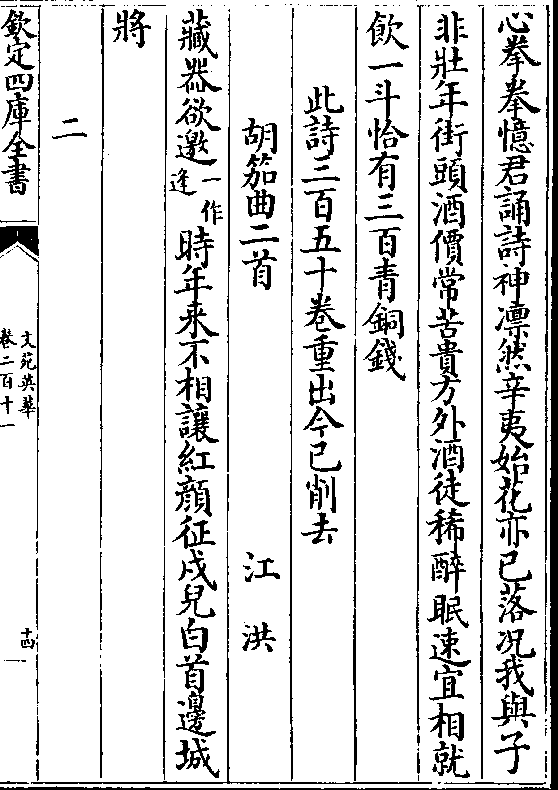 心拳拳憶君誦詩神凛然辛夷始花亦已落况我與子
非壯年街頭酒價常苦貴方外酒徒稀醉眠速宜相就
飲一斗恰有三百青銅錢
此詩三百五十卷重出今已削去
胡笳曲二首 江洪
藏器欲邀一作逢時年来不相讓紅顔征戍兒白首邊城
將
二
欽定四庫全書
文苑英華
卷二百十一
十四